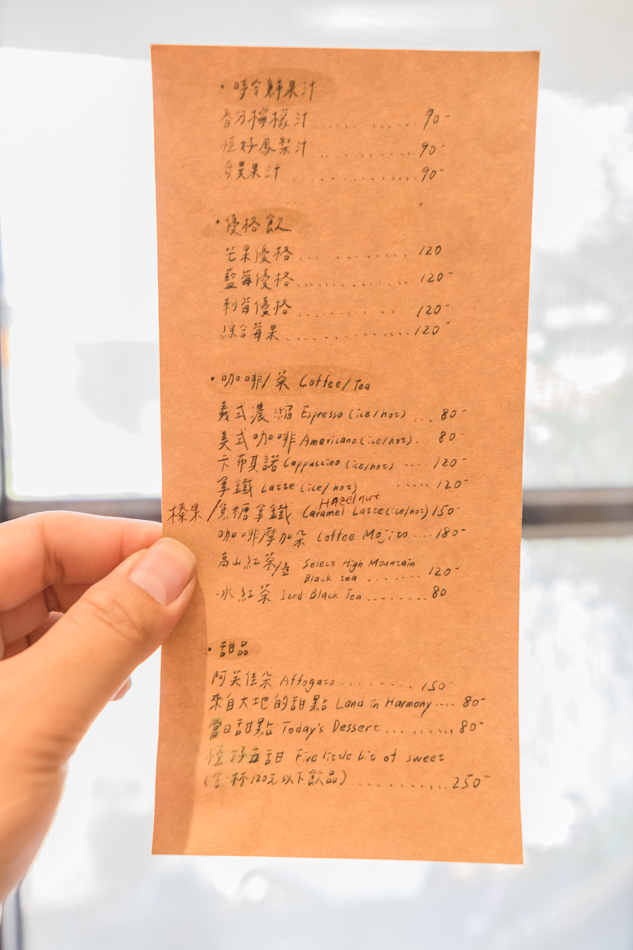 ·時令鮮果汁
春分檸檬汁 .......... 90-
恆好鳳梨汁 .......... 90-
果汁 .......... 90-
·優格飲
芒果優格 .......... 120
藍莓優格 .......... 120-
刺莓優格 .......... 120-
綜合莓果 .......... 120-
·咖啡/茶 Coffee/Tea
義式濃縮 Espresso (ice/hot) ... 80-
美式咖啡 Americano (ice/hot) ... 80-
卡布其諾 Cappuccino (ice/hot) .... 120-
拿鐵 Latte (ice/hot) ..... 120-
Hazelnut
榛果/焦糖拿鐵 Caramel Latte (ice/hot) 150-
咖啡摩加朵 Coffee Mojito ... 180-
高山紅茶/壺 Select High Mountain
Black tea ....... 120-
冰紅茶 Iced Black Tea ........ 80
·甜品
阿芙佳朵 Affogato ......... 150-
來自大地的甜點 Land in Harmony .... 80-
當日甜點 Today's Dessert ......... 80-
恆好五甜 Five little bit of sweet
(含一杯120元以下飲品) ........... 250-